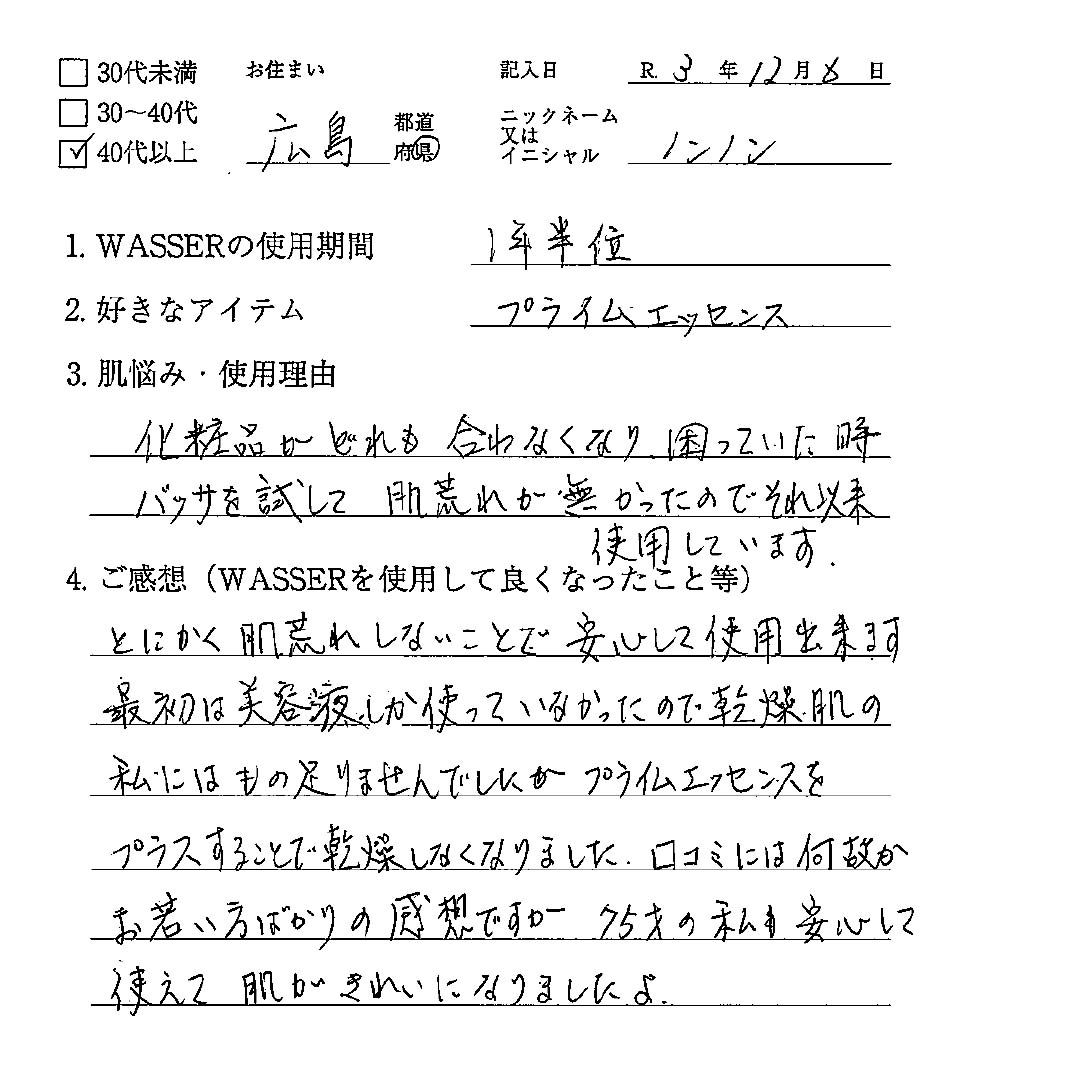 30代未満 お住まい 記入日 R. 3 年 12 月 6 日
30〜40代 広島 都道府県 ニックネーム又はイニシャル ノンノン
40代以上
1. WASSERの使用期間 1年半位
2. 好きなアイテム プライムエッセンス
3. 肌悩み・使用理由
化粧品がどれも合わなくなり、困っていた時
バッサを試して 肌荒れが無かったのでそれ以来
使用しています.
4. ご感想(WASSERを使用して良くなったこと等)
とにかく肌荒れしないことで安心して使用出来ます
最初は美容液しか使っていなかったので乾燥肌の
私にはもの足りませんでしたが プライムエッセンスを
プラスすることで乾燥しなくなりました. 口コミには何故か
お若い方ばかりの感想ですが 75才の私も安心して
使えて 肌がきれいになりましたよ.